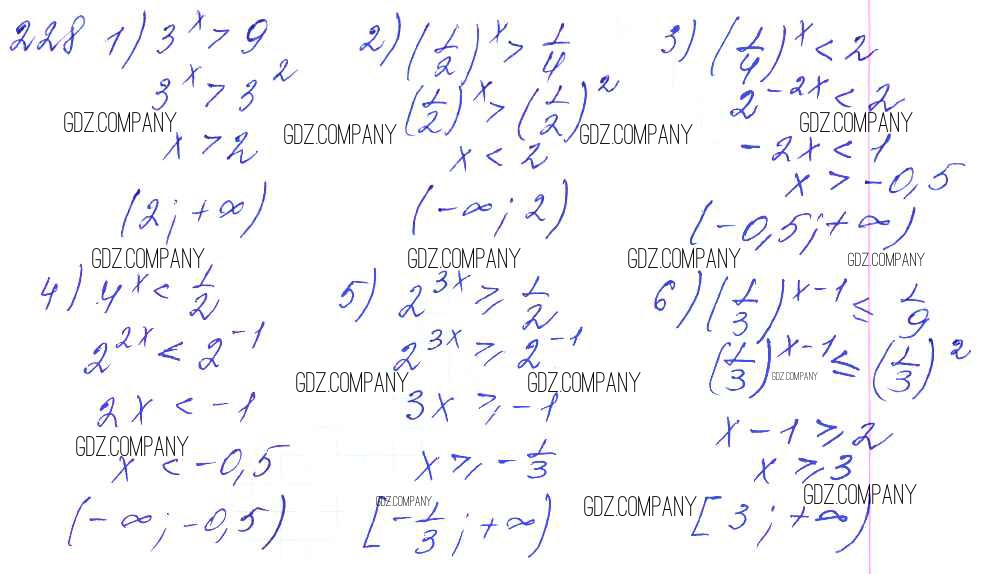 228 1) 3^x > 9
3^x > 3^2
GDZ.COMPANY
x > 2
(2; +∞)
2) (1/2)^x > 1/4
(1/2)^x > (1/2)^2
GDZ.COMPANY
x < 2
(-∞; 2)
3) (1/4)^x < 2
2^{-2x} < 2
GDZ.COMPANY
GDZ.COMPANY
-2x < 1
x > -0,5
(-0,5; +∞)
GDZ.COMPANY
GDZ.COMPANY
GDZ.COMPANY
GDZ.COMPANY
4) 4^x < 1/2
2^{2x} < 2^{-1}
2x < -1
GDZ.COMPANY
x < -0,5
(-∞; -0,5)
5) 2^{3x} ≥ 1/2
2^{3x} ≥ 2^{-1}
GDZ.COMPANY
GDZ.COMPANY
3x ≥ -1
x ≥ -1/3
GDZ.COMPANY
[-1/3; +∞)
6) (1/3)^{x-1} ≤ 1/9
(1/3)^{x-1} ≤ (1/3)^2
GDZ.COMPANY
x - 1 ≥ 2
x ≥ 3
GDZ.COMPANY
GDZ.COMPANY
[3; +∞)